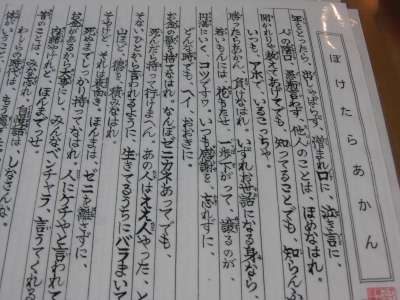 ぼけたらあかん
年をとったら、出しゃばらず、憎まれ口に、泣き言に、
人の陰口、愚痴言わず、他人のことは、ほめなはれ。
聞かれりゃ教えてあげても、知ってることでも、知らんふ
いつも、アホで、いるこっちゃ。
勝ったらあかん、負けなはれ。いずれお世話になる身なら、
若いもんには、花もたせ、一歩下がって、譲るのが、
円満にいく、コツですワ。いつも感謝を、忘れずに、
どんな時でも、ヘイ、おおきに。
お金の欲を、捨てなはれ。なんぼゼニカネあってても、
死んだら持って行けまへん。あの人はええ人やった、と
そないに人から言われるように、生きてるうちにバラまいて
山ほど、徳を、積みなはれ。
そやけど、それは表向き。ほんまは、ゼニを離さずに、
死ぬまでしっかり持ってなはれ。人にケチやと言われて
お金があるから大事にし、みんな、ベンチャラ、言うてくれる
内緒やけれど、ほんまでっせ。
昔のことは、みな忘れ、自慢話は、しなさんな。
わしらの時代は、もう過ぎた